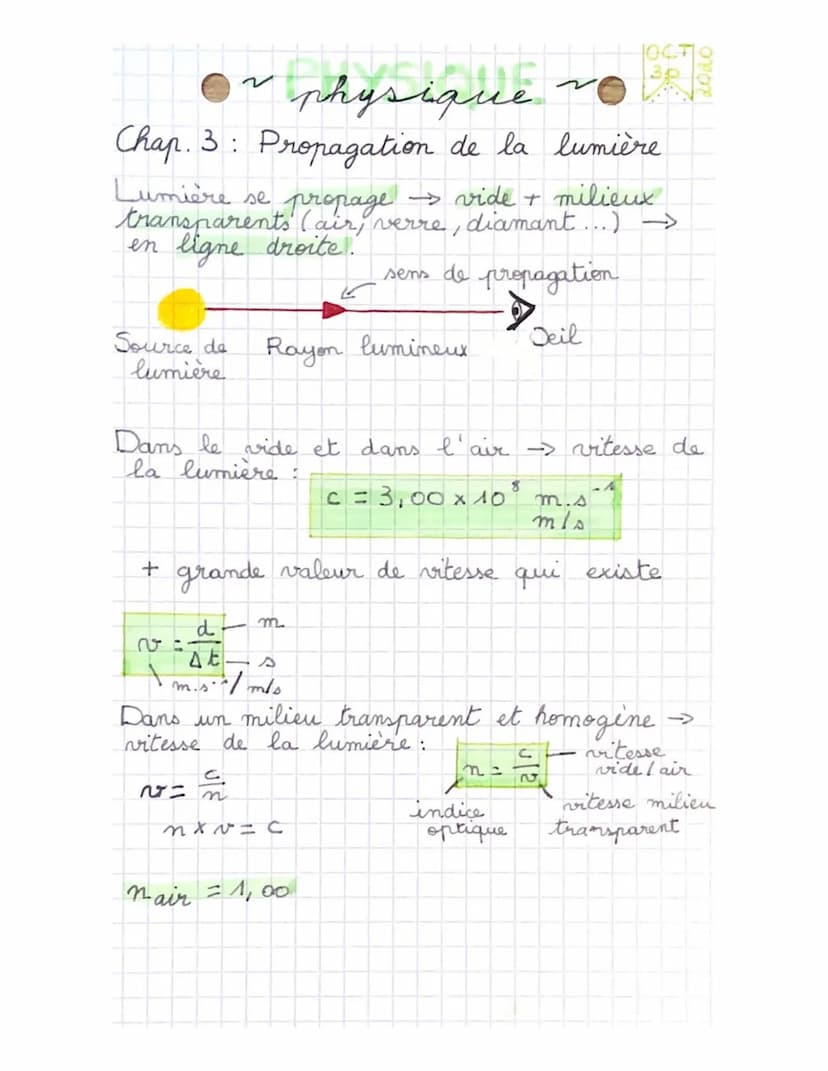 OCT
3P
2020
PHYSIQUE
~ physique ~
Chap. 3 : Propagation de la lumière
Lumière se propage → vide + milieux
transparents (air, verre, diamant ...) →
en ligne droite.
sens de propagation
Source de
lumière
Rayon lumineux
Oeil
Dans le vide et dans l'air → vitesse de
la lumière :
c = 3,00 × 10⁸ m.s⁻¹
m/s
+ grande valeur de vitesse qui existe
v = d/Δt
m
s
m.s⁻¹/ m/s
Dans un milieu transparent et homogène →
vitesse de la lumière :
v = c/n
n × v = c
n = c/v
vitesse
vide / air
indice
optique
vitesse milieu
transparent
n air = 1,00